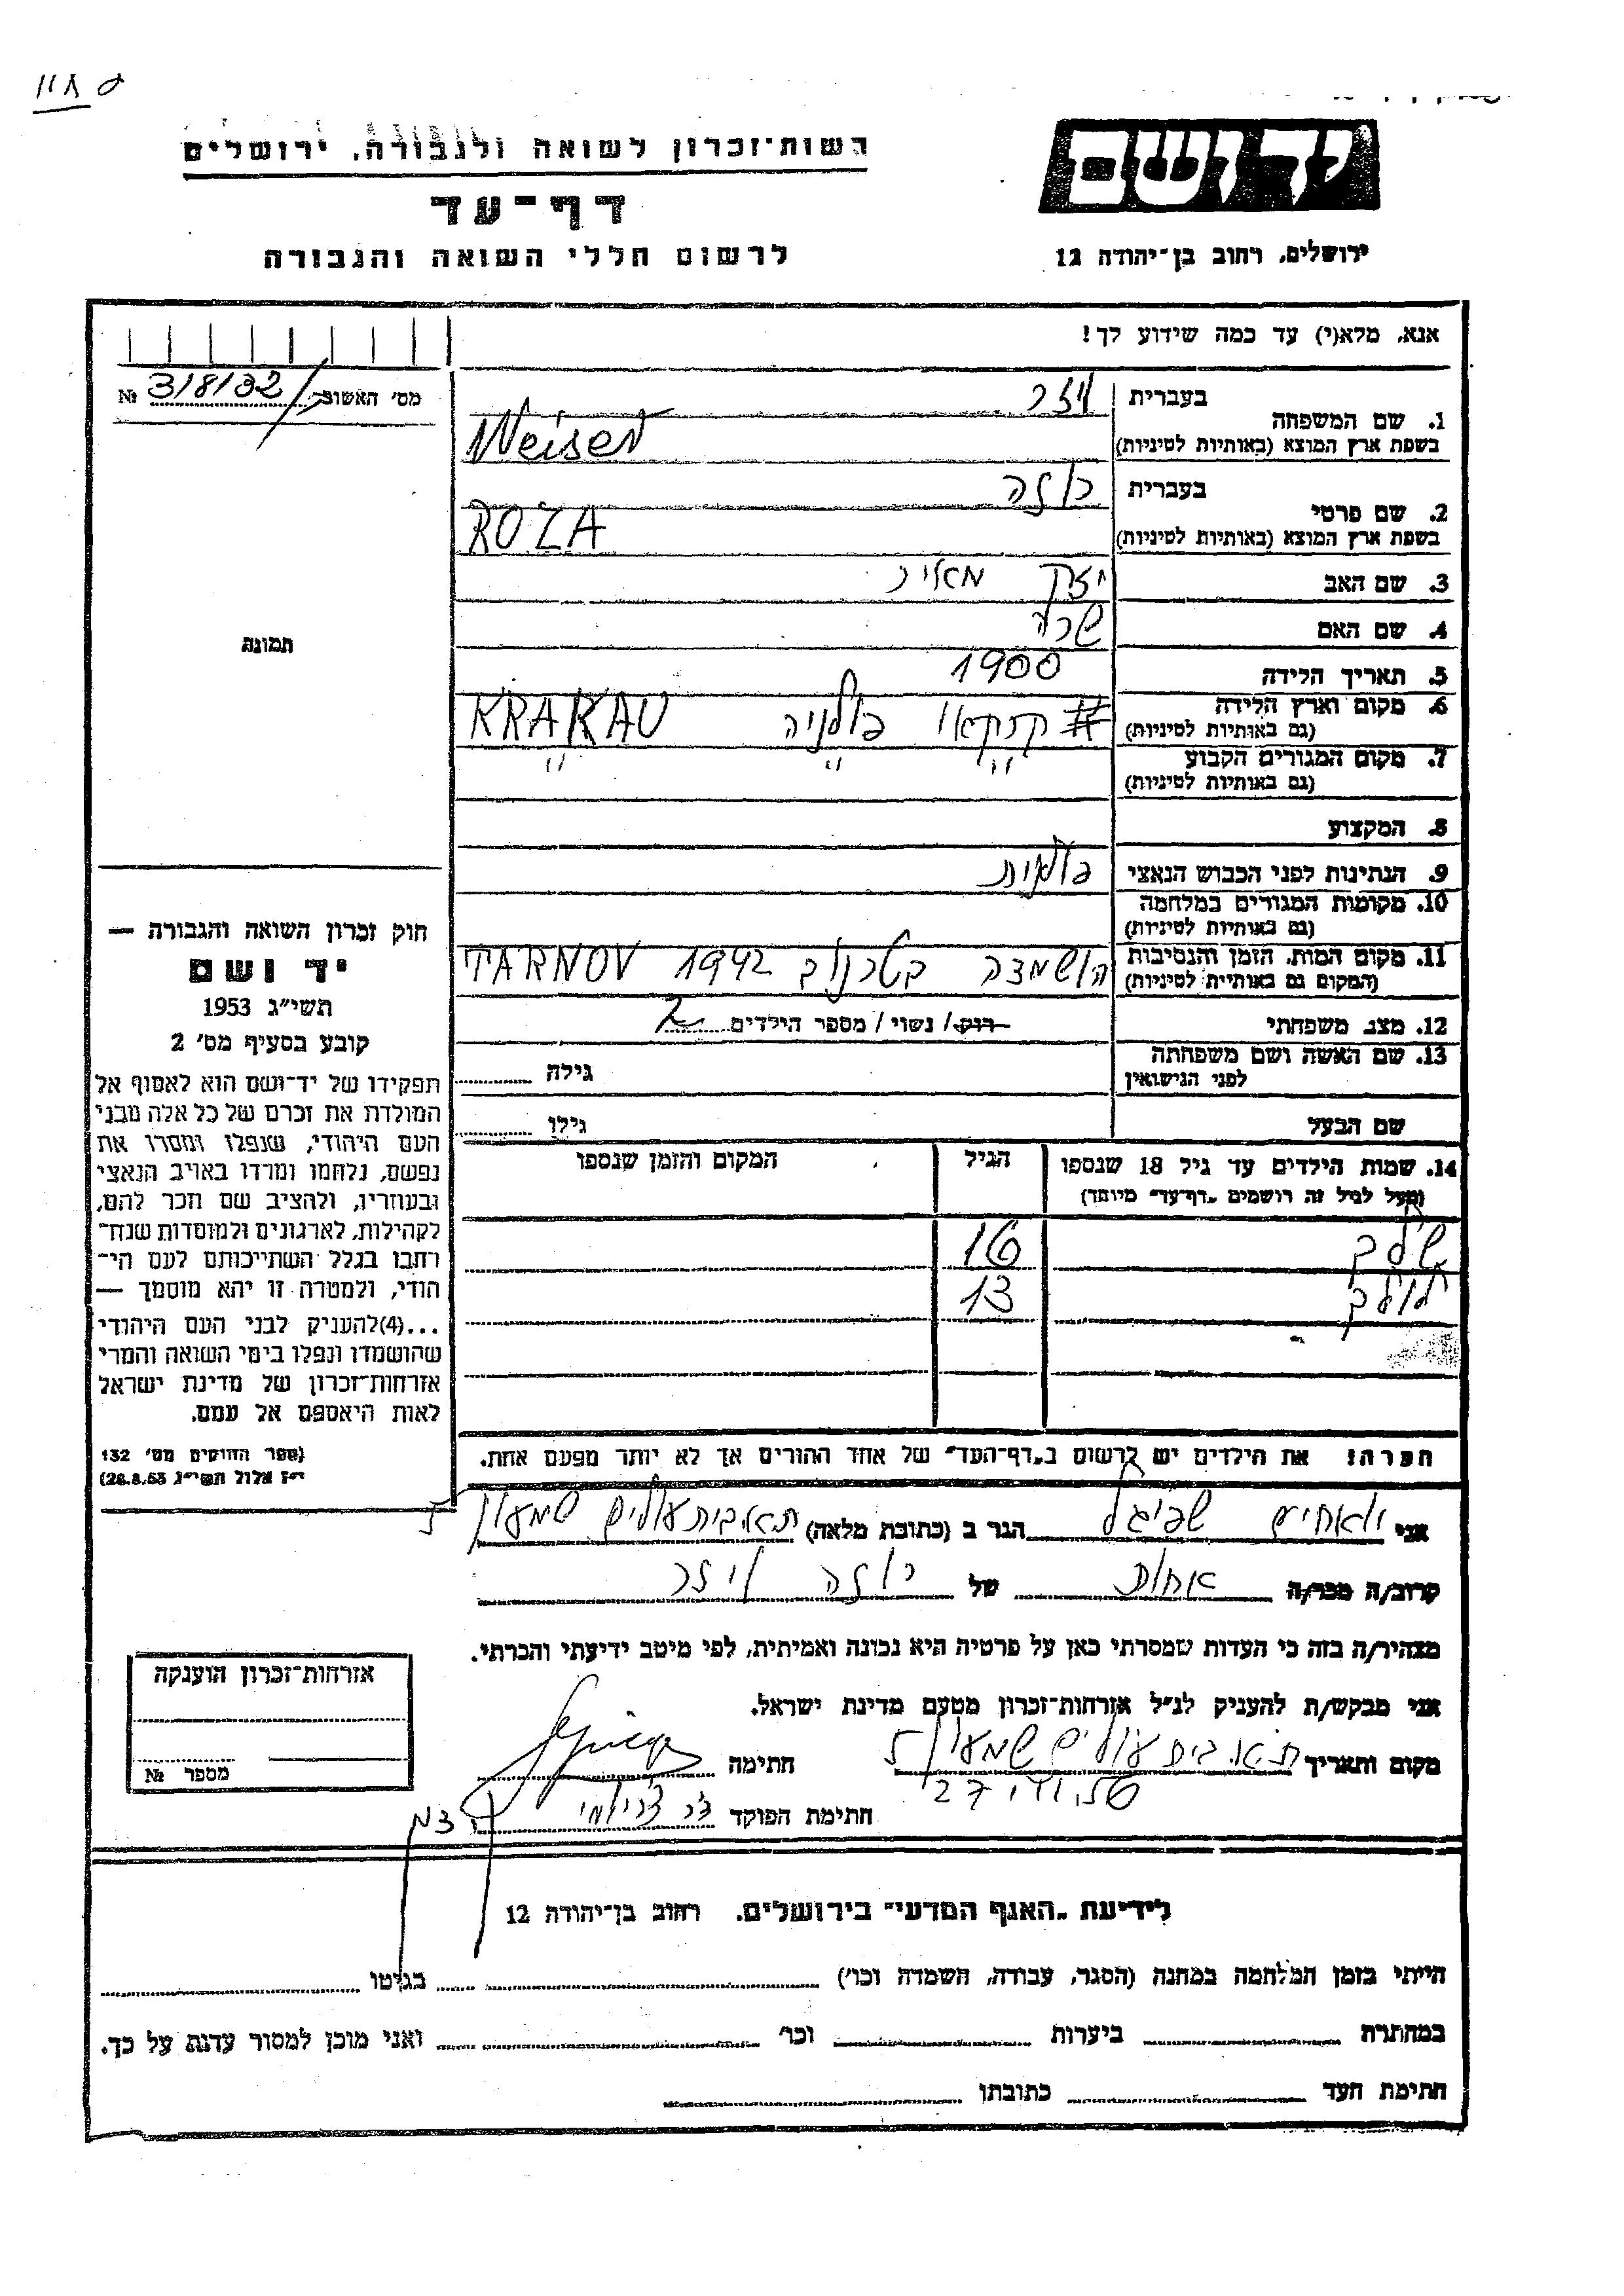 118 ס
רשות־זכרון לשואה ולגבורה, ירושלים
דף־עד
לרשום חללי השואה והגבורה
יד ושם
ירושלים, רחוב בן־יהודה 12
אנא, מלא(י) עד כמה שידוע לך!
מס׳ האשוב № 31832
1. שם המשפחה
בעברית ויזר
בשפת ארץ המוצא (באותיות לטיניות) Weiser
2. שם פרטי
בעברית רוזה
בשפת ארץ המוצא (באותיות לטיניות) ROZA
3. שם האב מאיר
4. שם האם שרה
5. תאריך הלידה 1900
6. מקום וארץ הלידה קרקאו פולניה KRAKAU
(גם באותיות לטיניות)
7. מקום המגורים הקבוע " " "
(גם באותיות לטיניות)
8. המקצוע
9. הנתינות לפני הכבוש הנאצי פולנית
10. מקומות המגורים במלחמה
(גם באותיות לטיניות)
11. מקום המות, הזמן והנסיבות הושמדה בטרנוב 1942 TARNOV
(המקום גם באותיות לטיניות)
12. מצב משפחתי רוק/ נשוי/ מספר הילדים 2
13. שם האשה ושם משפחתה
לפני הנישואין
גילה
שם הבעל גילו
14. שמות הילדים עד גיל 18 שנספו הגיל המקום והזמן שנספו
(מעל לגיל זה רושמים „דף־עד״ מיוחד)
16
13
הערה! את הילדים יש לרשום ב„דף־העד״ של אחד ההורים אך לא יותר מפעם אחת.
תמונה
חוק זכרון השואה והגבורה —
יד ושם
תשי״ג 1953
קובע בסעיף מס׳ 2
תפקידו של יד־ושם הוא לאסוף אל
המולדת את זכרם של כל אלה מבני
העם היהודי, שנפלו ומסרו את
נפשם, נלחמו ומרדו באויב הנאצי
ובעוזריו, ולהציב שם וזכר להם,
לקהילות, לארגונים ולמוסדות שנח־
רבו בגלל השתייכותם לעם הי־
הודי, ולמטרה זו יהא מוסמך —
...(4)להעניק לבני העם היהודי
שהושמדו ונפלו בימי השואה והמרי
אזרחות־זכרון של מדינת ישראל
לאות היאספם אל עמם.
(ספר החוקים מס׳ 132
י״ז אלול תשי״ג 28.8.53)
אני שפיגל הגר ב (כתובת מלאה) ת״א בית עולים שמעון 5
קרוב/ה מכר/ה אחות של רוזה ויזר
מצהיר/ה בזה כי העדות שמסרתי כאן על פרטיה היא נכונה ואמיתית, לפי מיטב ידיעתי והכרתי.
אני מבקש/ת להעניק לנ״ל אזרחות־זכרון מטעם מדינת ישראל.
מקום ותאריך ת״א בית עולים שמעון 5 חתימה
27
חתימת הפוקד
אזרחות־זכרון הוענקה
מספר №
לידיעת „האגף המדעי״ בירושלים, רחוב בן־יהודה 12
הייתי בזמן המלחמה במחנה (הסגר, עבודה, השמדה וכו׳) בגיטו
במחתרת ביערות וכו׳ ואני מוכן למסור עדות על כך.
חתימת העד כתובתו